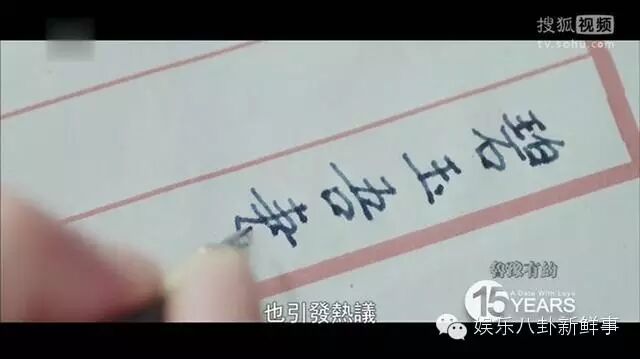 搜狐视频
tv.sohu.com
碧玉吾妻
鲁豫有约
A Date With Luyu
15 YEARS
也引發熱議
娱乐八卦新鲜事